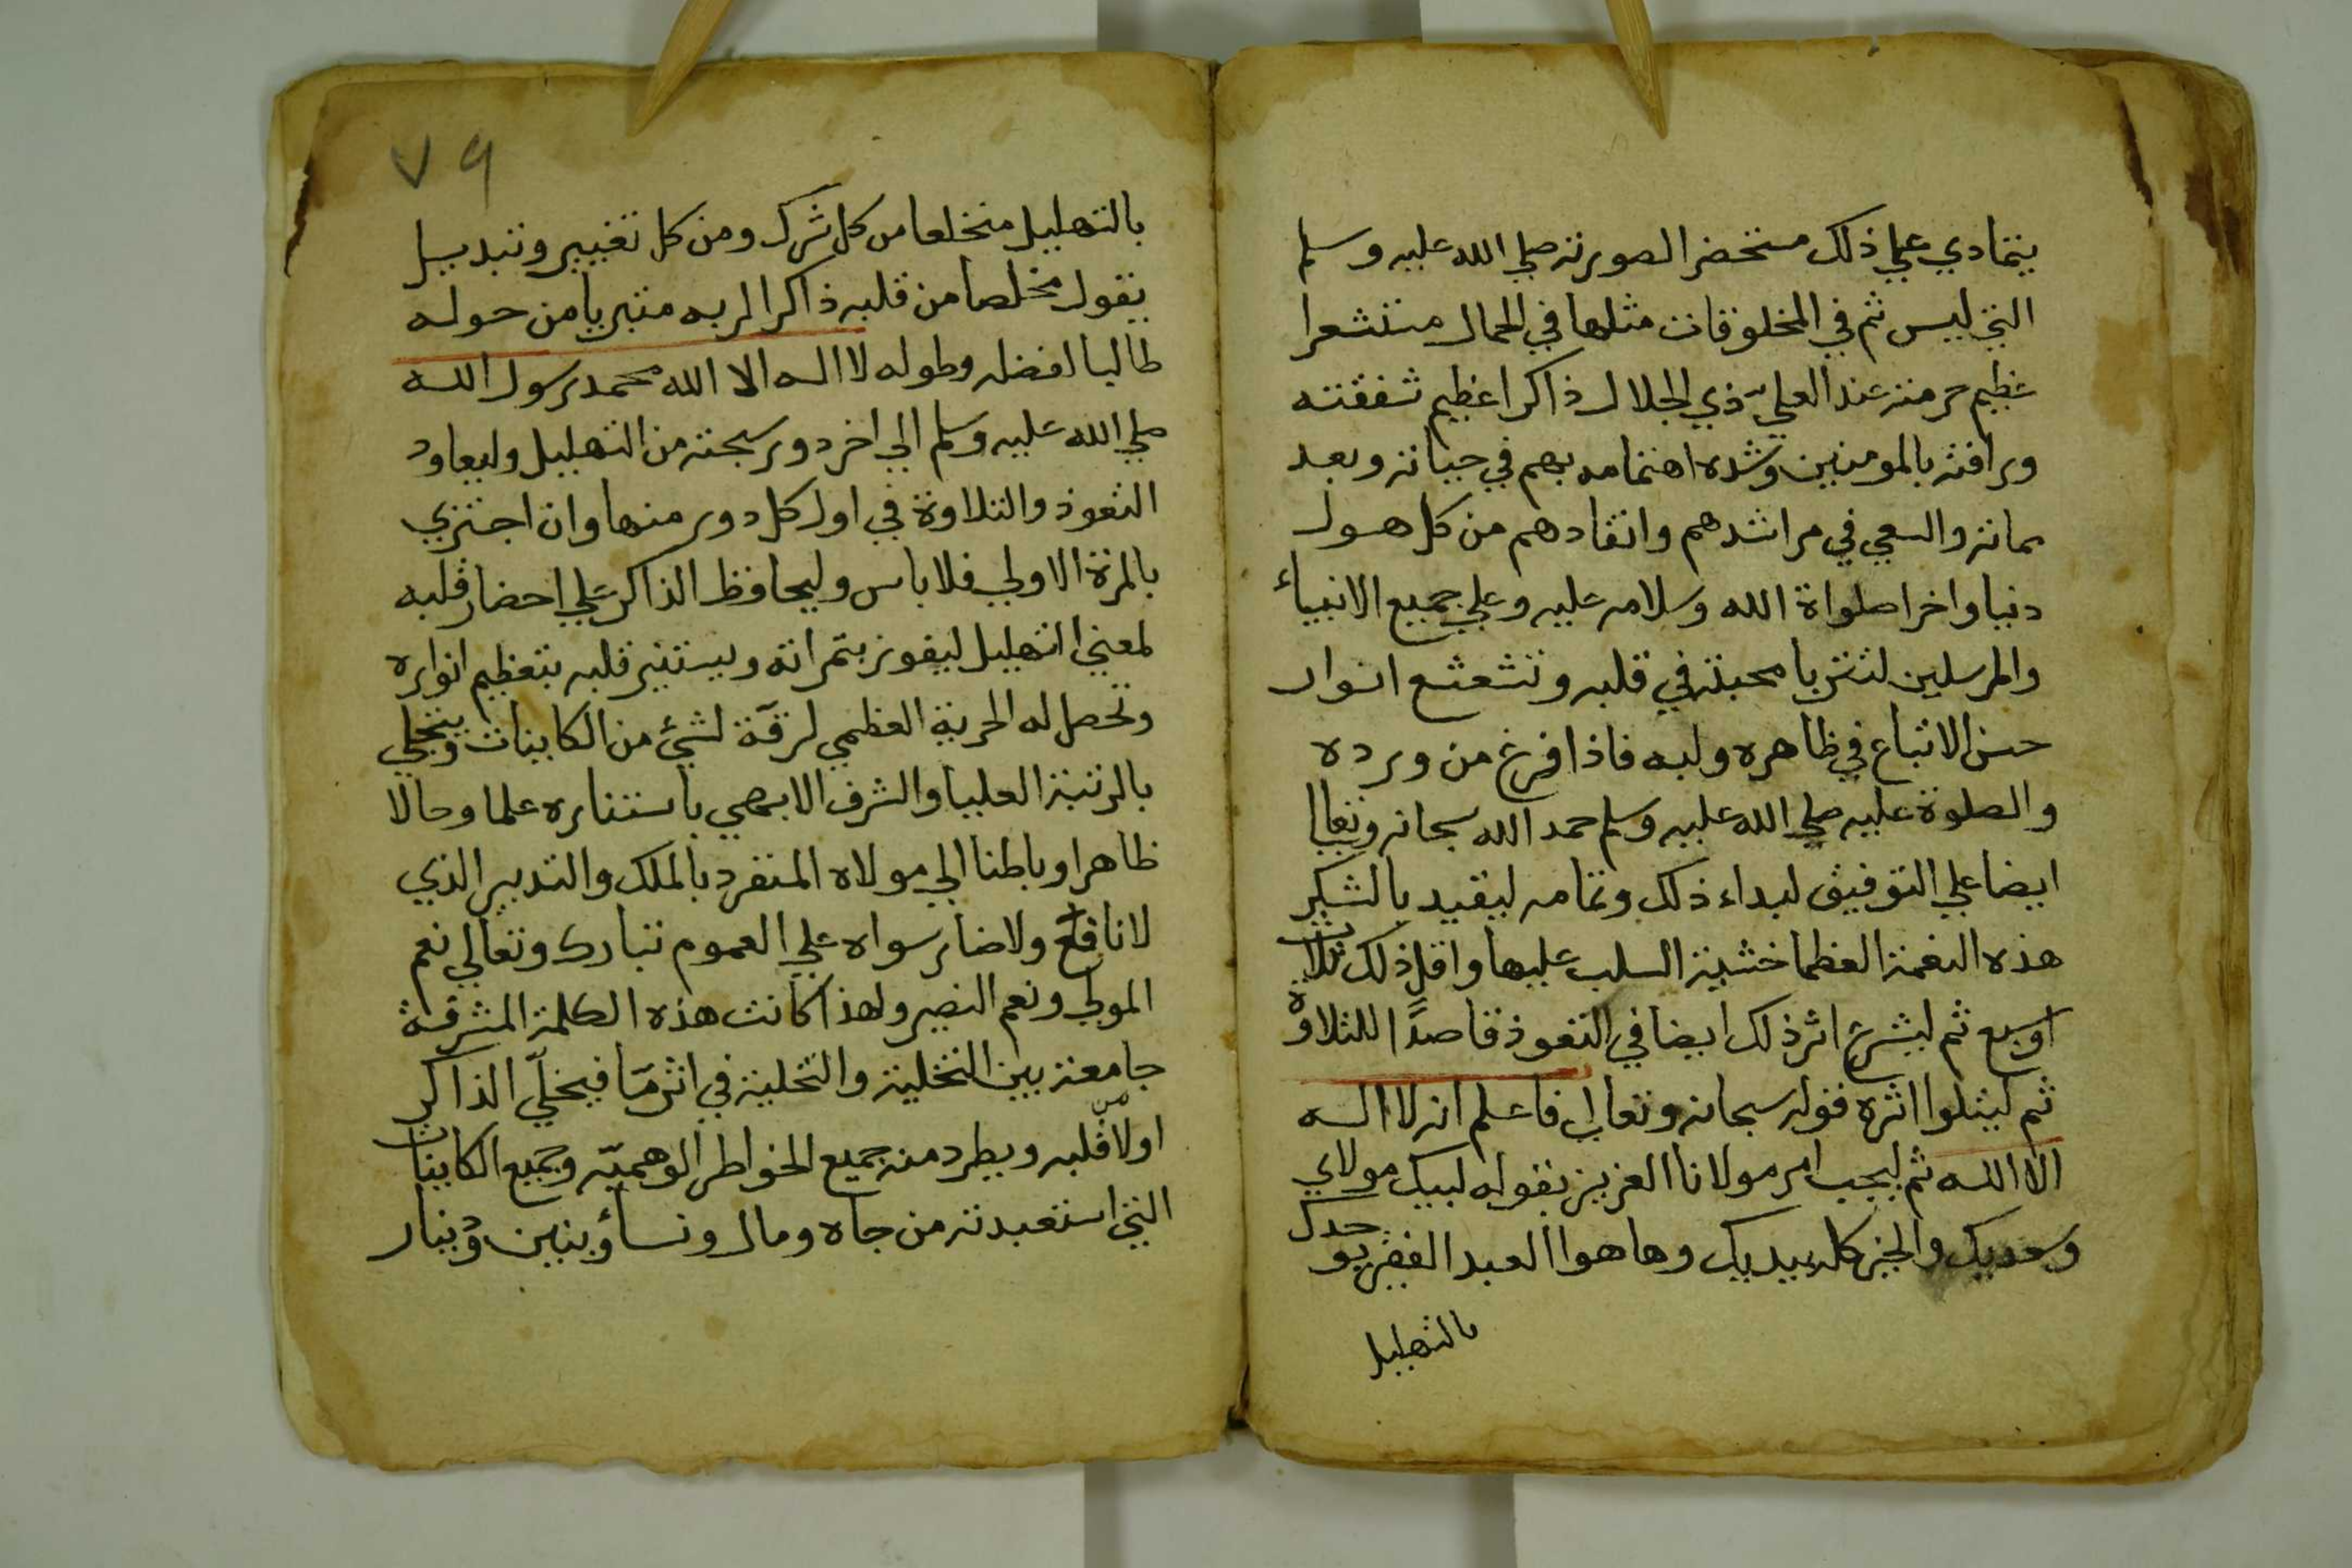 يتمادي علي ذلك مستحضر الصورته صلي الله عليه وسلم
التي ليس ثم في المخلوقات مثلها في الجمال مستشعرا
عظيم حرمته عند العلي ذي الجلال ذاكرا عظيم شفقته
ورافته بالمومنين وشده اهتمامه بهم في حياته وبعد
مماته والسعي في مراشدهم وانقادهم من كل هول
دنيا واخرا صلواة الله وسلامه عليه وعلي جميع الانبياء
والمرسلين لتتربا محبته في قلبه وتتشعشع انوار
حسن الاتباع في ظاهره ولبه فاذا فرغ من ورده
والصلوة عليه صلي الله عليه وسلم حمد الله سبحانه وتعالا
ايضا علي التوفيق لبداء ذلك وتمامه ليقيد بالشكر
هذه النعمة العظما خشية السلب عليها واقل ذلك ثلاث
اوسبع ثم ليشرع اثر ذلك ايضا في التعوذ قاصدًا للتلاوة
ثم ليتلوا اثره قوله سبحانه وتعالي فاعلم انه لا اله
الا الله ثم ليجب امر مولانا العزيز بقوله لبيك مولاي
وسعديك والخير كله بيديك وها هوا العبد الفقير يوحدك
بالتهليل
٧٩
بالتهليل منخلعا من كل شرك ومن كل تغيير وتبديل
يقول مخلصا من قلبه ذاكرا لربه متبريا من حوله
طالبا لفضله وطوله لا اله الا الله محمد رسول الله
صلي الله عليه وسلم الي اخر دور سبحته من التهليل وليعاود
التعوذ والتلاوة في اول كل دور منها وان اجتزي
بالمرة الاولي فلا باس وليحافظ الذاكر علي احضار قلبه
لمعني التهليل ليفوز بتمراته ويستنير قلبه بتعظيم انواره
وتحصل له الحرية العظمي لرقة لشيء من الكاينات ويتحلي
بالرتبة العليا والشرف الابهي باستناره علما وحالا
ظاهرا وباطنا الي مولاه المنفرد بالملك والتدبير الذي
لا نافع ولا ضار سواه علي العموم تبارك وتعالي نعم
المولي ونعم النصير ولهذا كانت هذه الكلمة المشرفة
جامعة بين التخلية والتحلية في اثرمّا فيخلّي الذاكر
اولا قلبه ويطرد منه جميع الخواطر الوهميّه وجميع الكاينات
التي استعبدته من جاه ومال ونساء وبنين ودينار